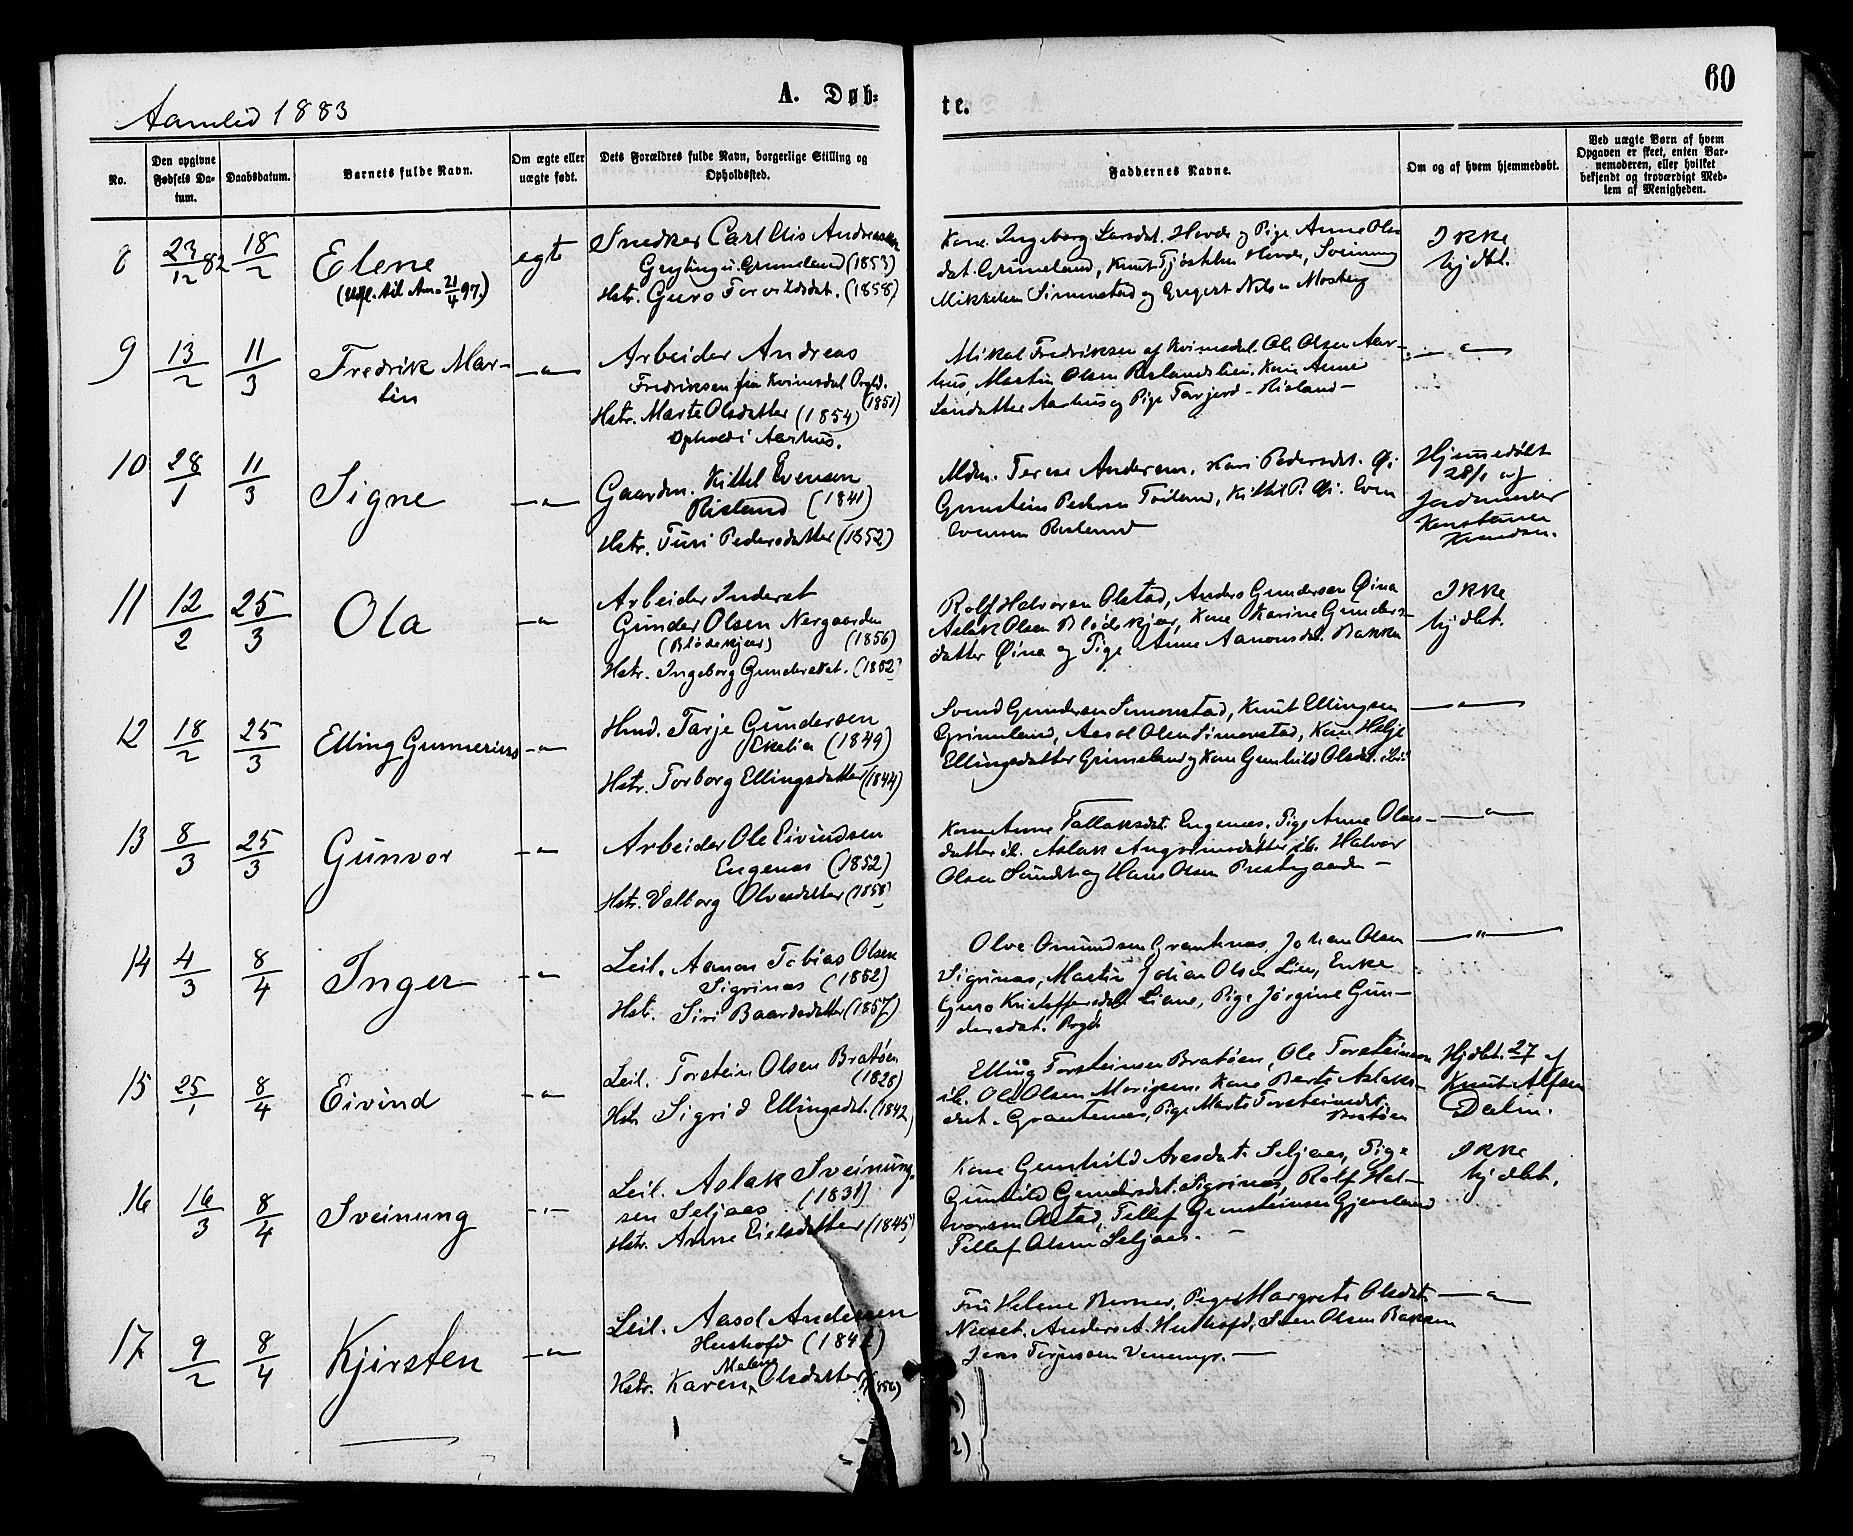 60
A. Døb-
te.
Aamlid 1883
No.
Den opgivne Fødsels Da-tum.
Daabsdatum.
Barnets fulde Navn.
Om ægte eller uægte født.
Dets Forældres fulde Navn, borgerlige Stilling og Opholdssted.
Faddernes Navne.
Om og af hvem hjemmedøbt.
Ved uægte Børn af hvem Opgaven er skeet, enten Bar-nemoderen, eller hvilket bekjendt og troværdigt Med-lem af Menigheden.
8
23/12 82
18/2
Elene
til Am. 21/4 97.)
egte
Snedker Carl Andreassen
Grimeland (1853)
Hstr. Guro Torvildsdat. (1858)
Kone Ingeborg Larsdat. Hovde og Pige Anne Ols
dat. Grimeland, Knut Hovde, Sveinung
Mikkelsen Simonstad og Engert Nilsen Mosberg
Ikke
hjdbt.
9
13/2
11/3
Fredrik Mar-
tin
—"—
Arbeider Andreas
Fredriksen fra Kvinesdal Prgld.
(1851)
Hstr. Marte Olsdatter (1854)
Ophold i Aarhus.
Mikal Fredriksen af Kvinesdal. Ole Olsen Aar-
hus, Martin Olsen Rislandslien, Kone Anne
Aarhus og Pige Tarjerd Risland —
—"—
10
28/1
11/3
Signe
—"—
Gaardm. Kittel Evensen
Risland (1841)
Hstr. Turi Pedersdatter (1852)
Mdm. Terese Andersen, Kari Pedersdat. Øi
Grunstein Pedersen Kittil P. Øi. Even
Evensen Risland
Hjemmedøbt
28/1 af
Jordmoder
Konstance
Knudsen.
11
12/2
25/3
Ola
—"—
Arbeider Inderst
Gunder Olsen Nergaarden
(Blødekjær) (1856)
Hstr. Ingeborg Gundersdat. (1852)
Rolf Halvorsen Olstad, Anders Gundersen Øina
Aslak Olsen Blødekjær, Kone Karine Gunders-
datter Øina og Pige Anne Aanonsdat. Bakken
Ikke
hjdbt.
12
18/2
25/3
Elling Gunnerius
—"—
Hmd. Tarje Gundersen
Ekelia (1849)
Hstr. Torborg Ellingsdatter (1844)
Svend Gundersen Simonstad, Knut Ellingsen
Grimeland, Aasol Olsen Simonstad, Kone Helje
Ellingsdatter Grimeland og Kone Gunhild Olsdat. ibid
—"—
13
8/3
25/3
Gunvor
—"—
Arbeider Ole Eivindsen
Engenes (1852)
Hstr. Valborg Olvesdatter (1858)
Kone Anne Tallaksdat. Engenes, Pige Anne Olves-
datter ib. Aslak ib. Halvor
Olsen Sundet og Hans Olsen Prestegaarden —
—"—
14
4/3
8/4
Inger
—"—
Leil. Aanon Tobias Olsen
Sigrinas (1852)
Hstr. Siri Baardsdatter (1857)
Olve Omundsen Grantenas, Johan Olsen
Sigrinas, Martin Johan Olsen Lien, Enke
Guro Kristoffersdat. Liane, Pige Jørgine Gun-
dersdat.
—"—
15
25/1
8/4
Eivind
—"—
Leil. Torstein Olsen Bratøen
(1828)
Hstr. Sigrid Ellingsdat. (1842)
Elling Torsteinsen Bratøen, Ole Torsteinsen
ib. Ole Olsen Kone Berte Aslaks-
dat. Grantenas, Pige Marte Torsteinsdat.
Bratøen
Hjdbt. 27 af
Knut Alfsen
Dalen.
16
16/3
8/4
Sveinung
—"—
Leil. Aslak Sveinung-
sen Seljaas (1831)
Hstr. Anne Eielsdatter (1845)
Kone Gunhild Aresdat. Seljaas, Pige
Gunhild Gundersdat. Sigrinas, Rolf Hal-
vorsen Olstad, Tellef Grunsteinsen Gjeveland
Tellef Olsen Seljaas. —
Ikke
hjdbt.
17
9/2
8/4
Kjirsten
—"—
Leil. Aasol Andersen
Husthofd
Hstr. Karen Malene Olsdatter
Fru Helene Berner, Pige Margrete Olsdat.
Neset. Anders A. Husthofd, Sven Olsen Bakken
Jens Terjussen Venemyr. —
—"—
2)